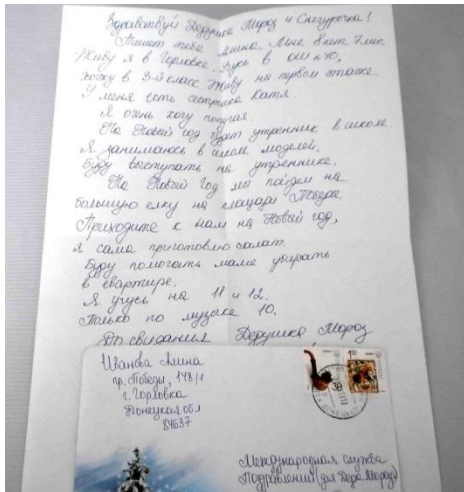 Здравствуй Дедушка Мороз и Снегурочка!
Пишет тебе Алина. Мне 8 лет 7 мес.
Живу я в Горловке. Учусь в ОШ №40,
хожу в 3-й класс. Живу на первом этаже.
У меня есть сестричка Катя
Я очень хочу попугая.
На Новый год будет утренник в школе.
Я занимаюсь в школе моделей.
Буду выступать на утреннике.
На Новый Год мы пойдем на
большую елку на площади Победы.
Приходите к нам на Новый год,
я сама приготовлю салат.
Буду помогать маме убирать
в квартире.
Я учусь на 11 и 12.
Только по музыке 10.
До свидания Дедушка Мороз
Иванова Алина
пр. Победы, 148/1
г. Горловка
Донецкая обл
84637
Международная служба
Поздравлений (для Деда Мороза)